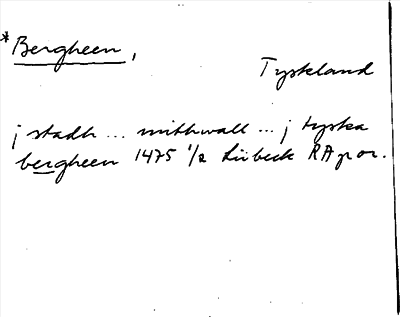 *Bergheen,
Tyskland
j stadh ... mithwalt ... j tyska
bergheen 1475 1/2 Lübeck RA p or.